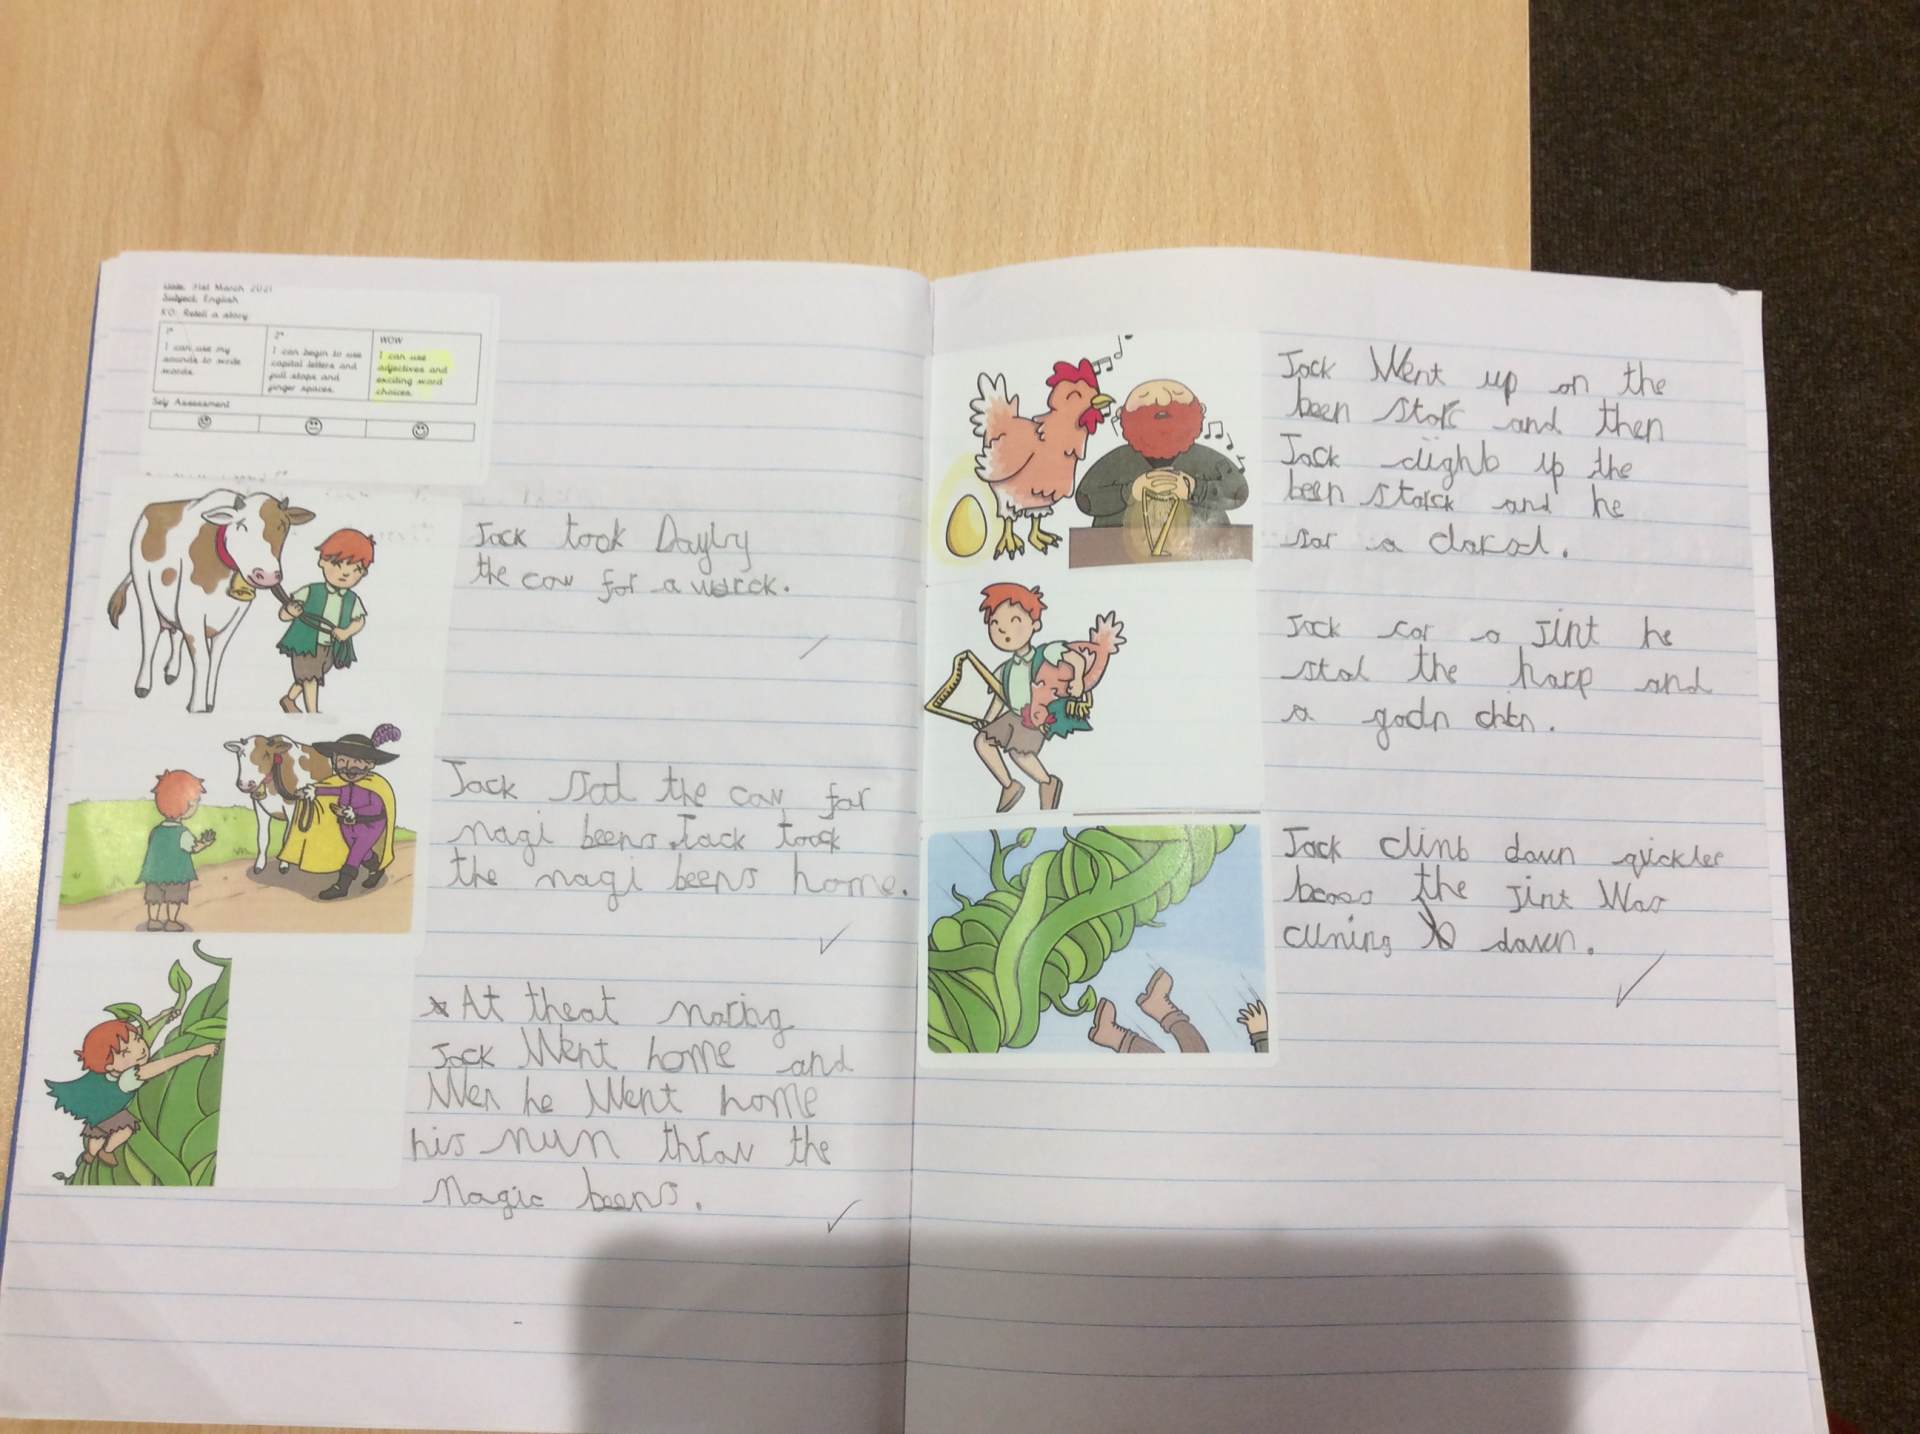 Date: 31st March 2021
Subject: English
KO: Retell a story
1*
I can use my
sounds to write
words.
2*
I can begin to use
capital letters and
full stops and
finger spaces.
WOW
I can use
adjectives and
exciting word
choices.
Self Assessment
Jack took Dayby
the cow for a warck.
Jack sod the cow for
magi beens. Jack took
the magi beens home.
At theat moring
Jack Went home and
Wen he Went home
his mum thraw the
Magic beens.
Jack Went up on the
been stork and then
Jack clighb up the
been starck and he
sor a clarsol.
Jack sor a Jint he
stol the harp and
a godn chkn.
Jack climb dawn quickler
the Jint Was
cuming dawn.